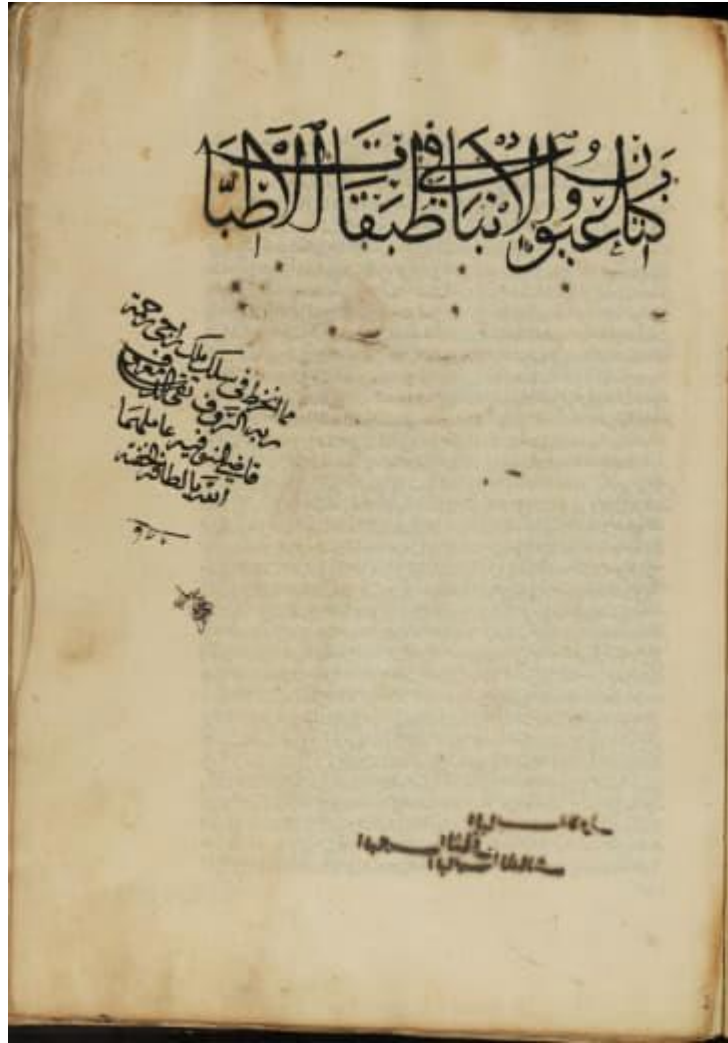 كتاب عيون الانباء في طبقات الاطباء
مما انخرط في سلك ملك راجي رحمة
ربه الرؤف تقي الدين المعروف
قاضي المنوفيه عاملهما
الله بالطافه الخفية